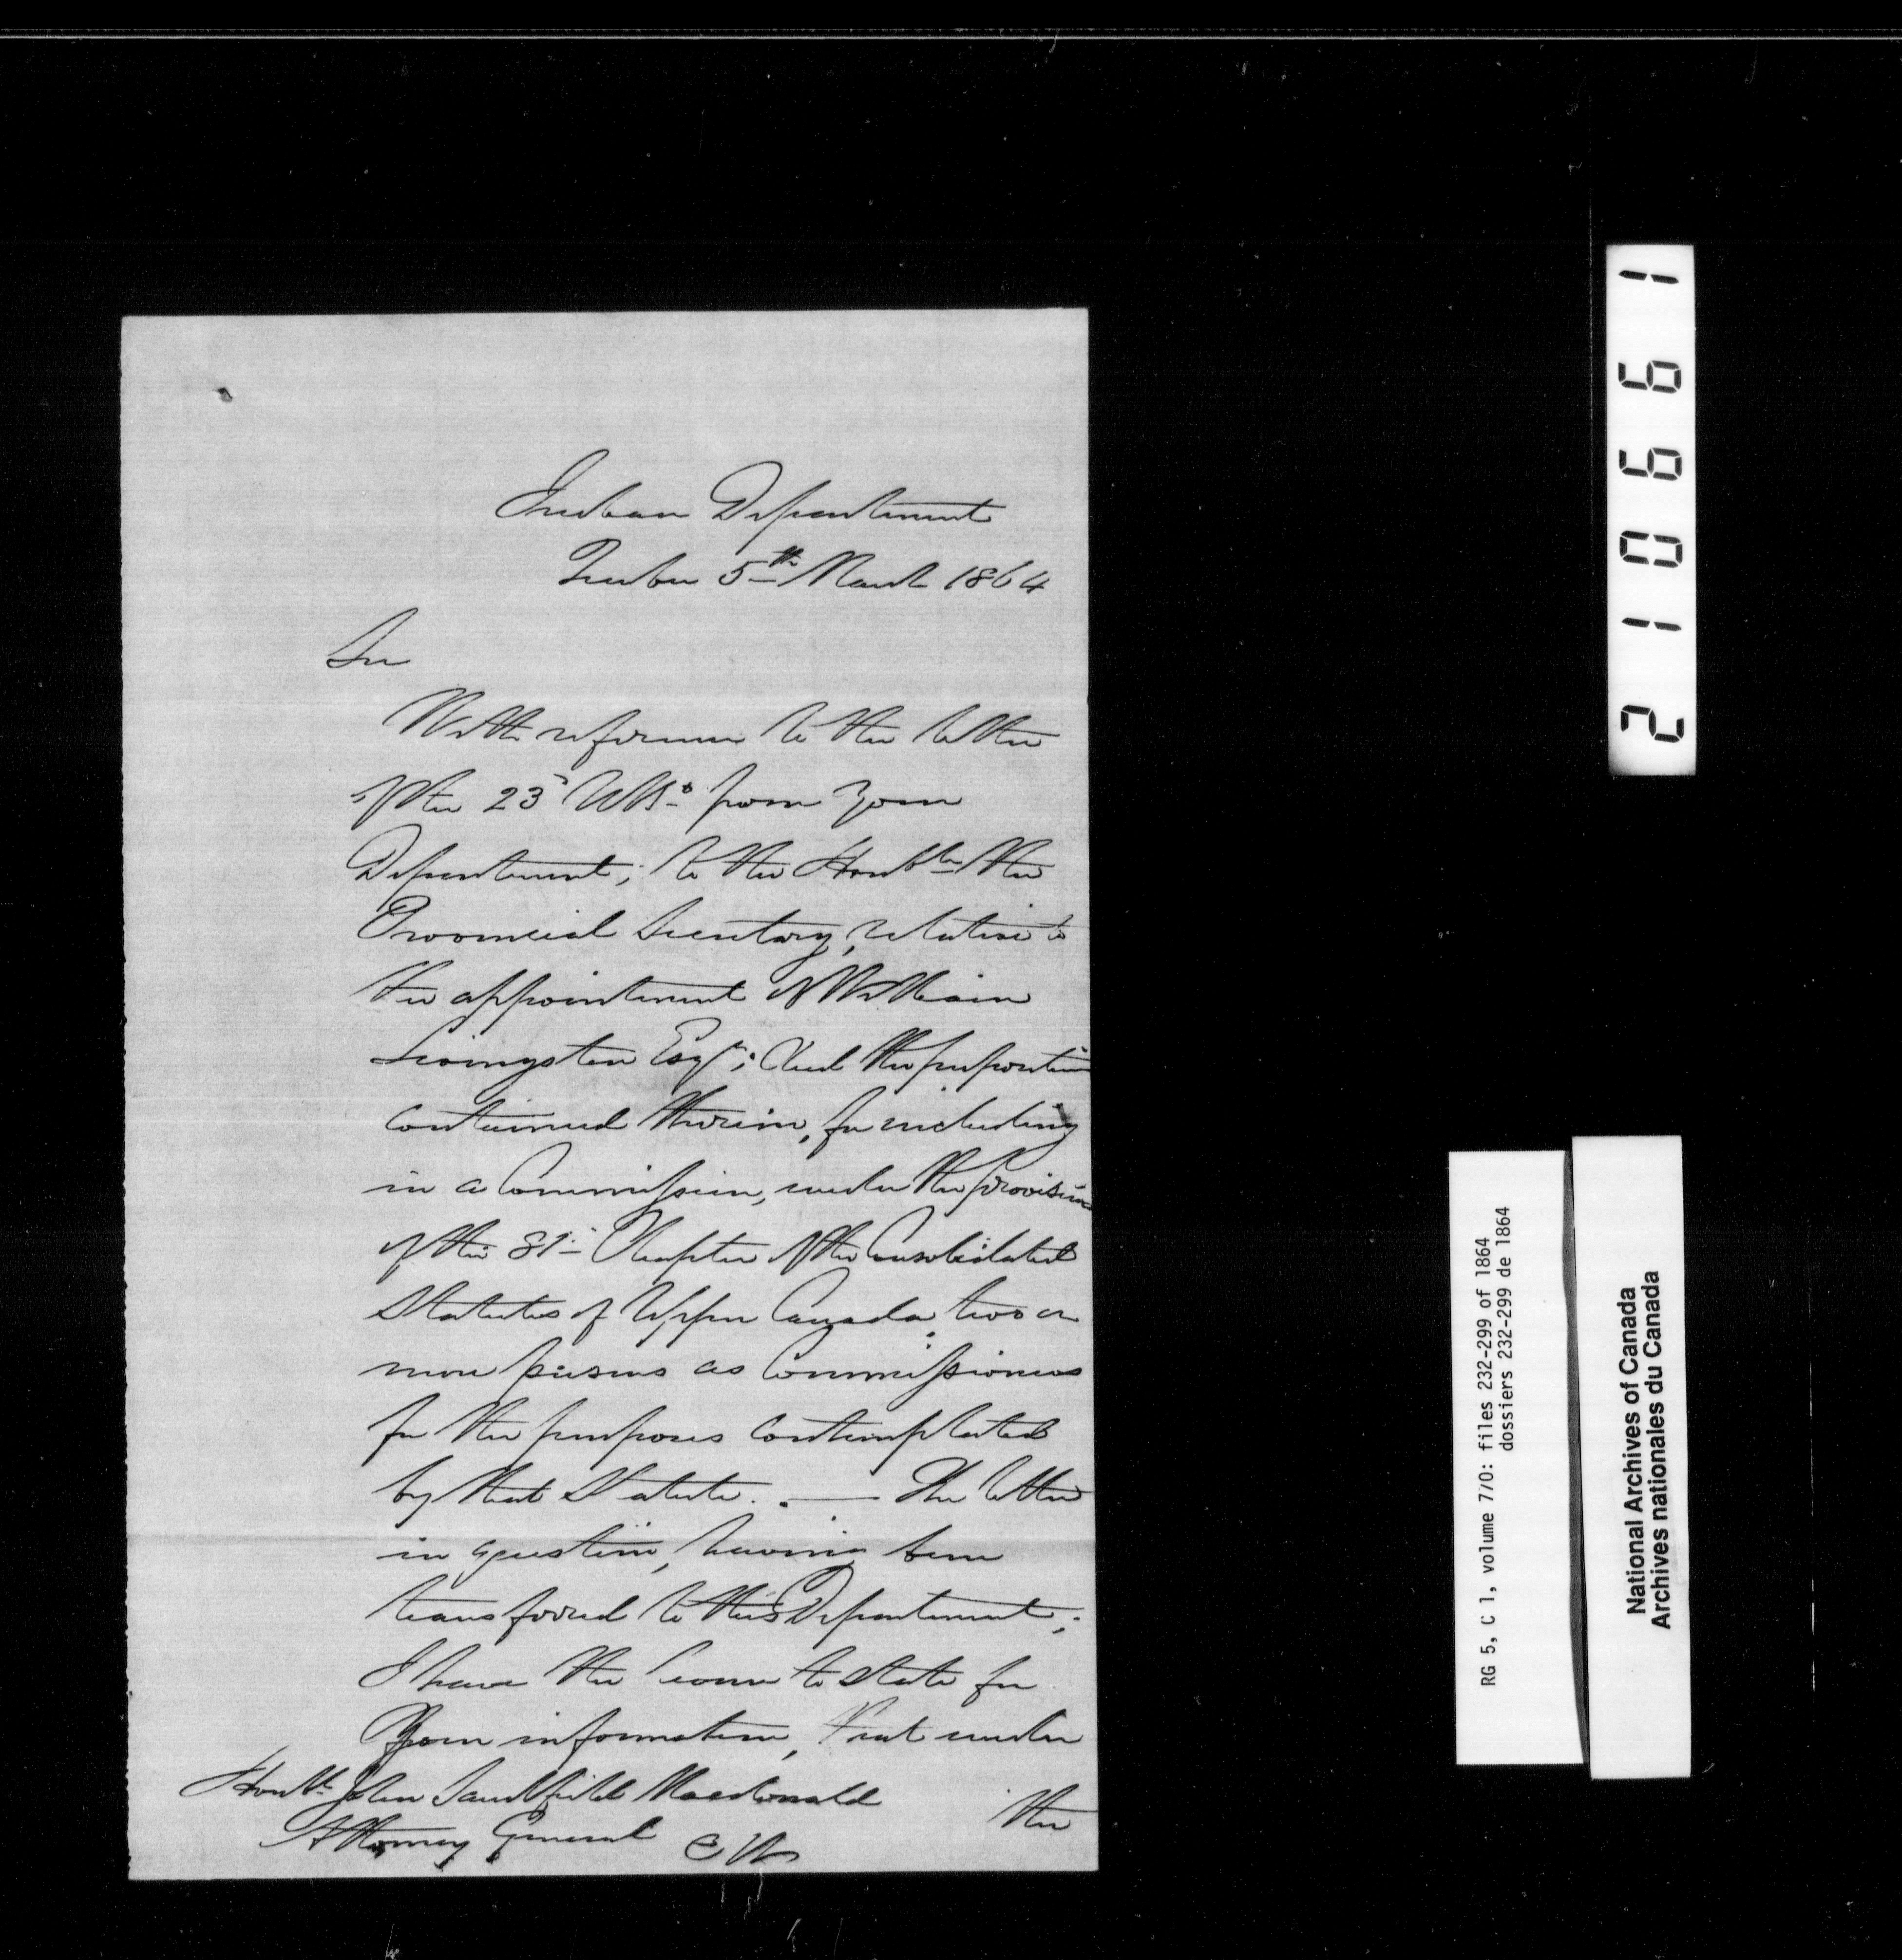 Indian Department
Quebec 5th March 1864
Sir
With reference to the letter
of the 23d Ulto from Your
Department; to the Honble the
Provincial Secretary, relative to
the appointment of William
Livingston Esqr; And the proposition
contained therein, for including
in a Commission, under the provisions
of the 81st Chapter of the Consolidated
Statutes of Upper Canada two or
more persons as Commissioners
for the purposes contemplated
by that Statute. — The letter
in question, having been
transferred to this Department;
I have the honor to state for
Your information, that under
the
Honble John Sandfield Macdonald
Attorney General C W
210661
RG 5, C 1, volume 770: files 232-299 of 1864
dossiers 232-299 de 1864
National Archives of Canada
Archives nationales du Canada